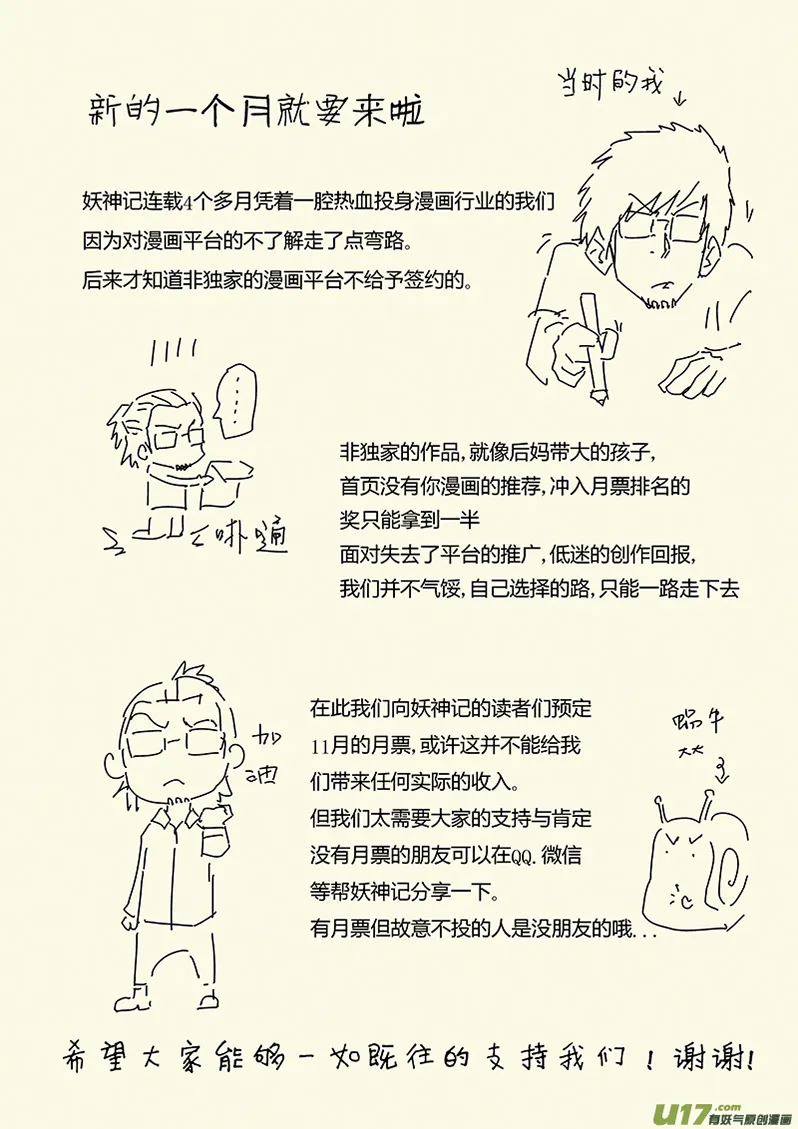 新的一个月就要来啦
当时的我
妖神记连载4个多月凭着一腔热血投身漫画行业的我们
因为对漫画平台的不了解走了点弯路。
后来才知道非独家的漫画平台不给予签约的。
......
非独家的作品,就像后妈带大的孩子,
首页没有你漫画的推荐,冲入月票排名的
奖只能拿到一半
面对失去了平台的推广,低迷的创作回报,
我们并不气馁,自己选择的路,只能一路走下去
在此我们向妖神记的读者们预定
11月的月票,或许这并不能给我
们带来任何实际的收入。
但我们太需要大家的支持与肯定
没有月票的朋友可以在QQ.微信
等帮妖神记分享一下。
有月票但故意不投的人是没朋友的哦...
加
油
蜗牛
希望大家能够一如既往的支持我们!谢谢!
U17.com
有妖气原创漫画